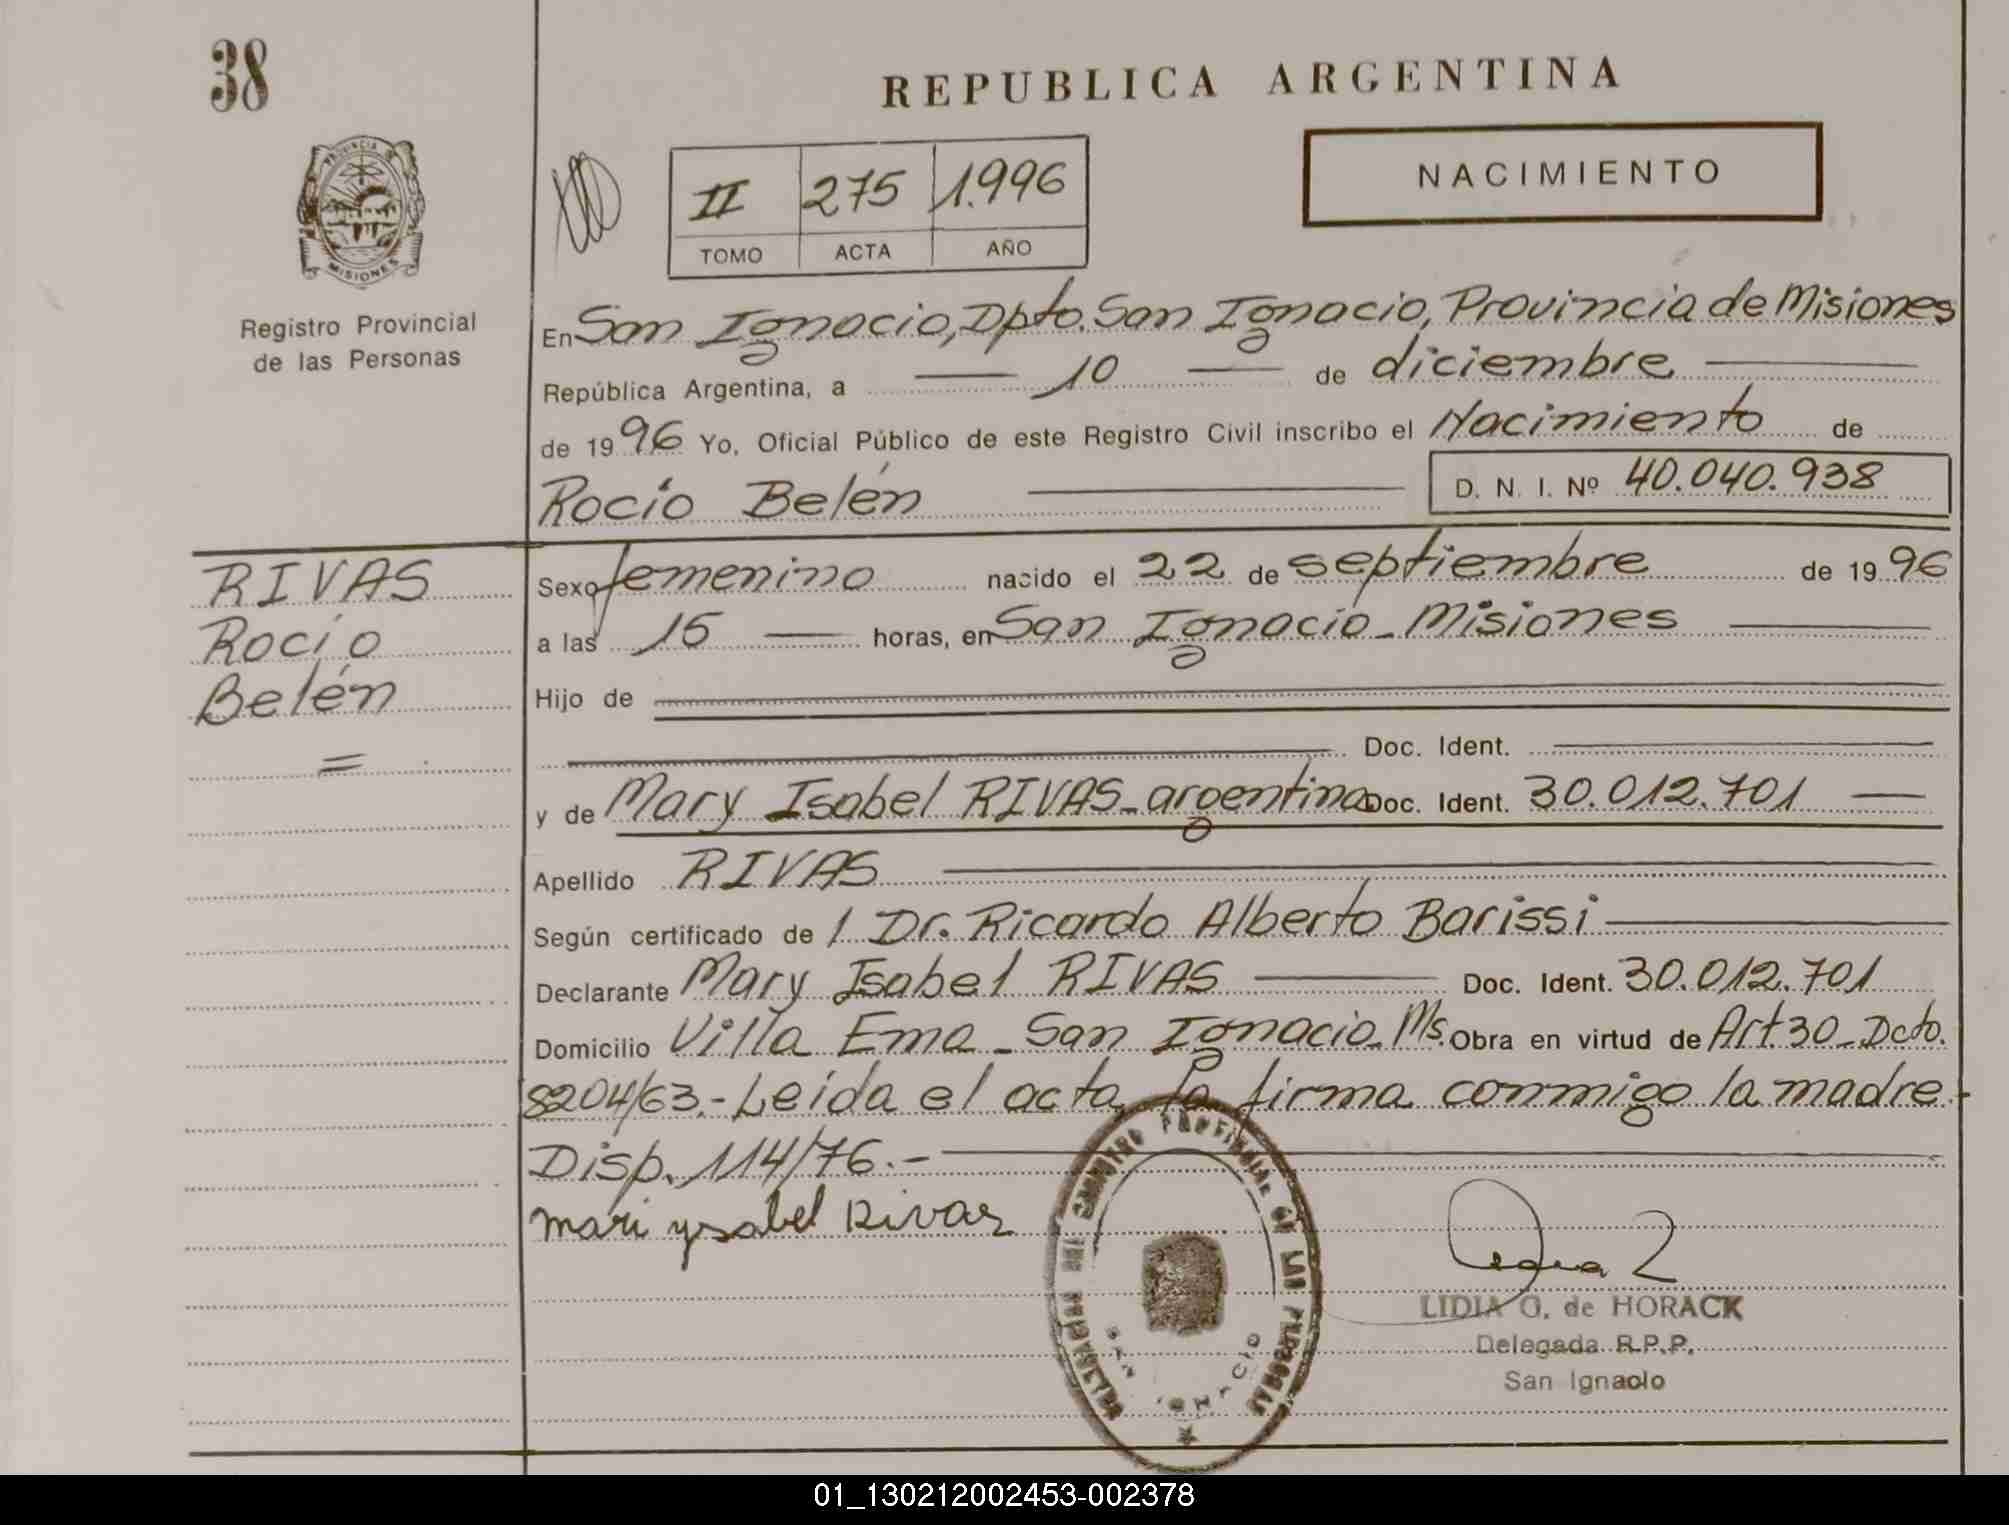 38
REPUBLICA ARGENTINA
NACIMIENTO
II 275 1.996
TOMO ACTA AÑO
PROVINCIA DE
MISIONES
Registro Provincial
de las Personas
En San Ignacio, Dpto. San Ignacio, Provincia de Misiones
República Argentina, a — 10 — de diciembre —
de 1996 Yo, Oficial Público de este Registro Civil inscribo el Nacimiento de
Rocío Belén — D. N. I. Nº 40.040.938
RIVAS
Rocío
Belén
=
Sexo femenino nacido el 22 de septiembre de 1996
a las 15 — horas, en San Ignacio - Misiones —
Hijo de
Doc. Ident.
y de Mary Isabel RIVAS - argentina Doc. Ident. 30.012.701 —
Apellido RIVAS —
Según certificado de / Dr. Ricardo Alberto Barissi —
Declarante Mary Isabel RIVAS — Doc. Ident. 30.012.701
Domicilio Villa Ema - San Ignacio - Ms. Obra en virtud de Art. 30 - Dcto.
8204/63.- Leída el acta, la firma conmigo la madre.-
Disp. 114/76.- —
mari ysabel Rivas
REGISTRO PROVINCIAL DE LAS PERSONAS
SAN IGNACIO
LIDIA O. de HORACK
Delegada R.P.P.
San Ignacio
01_130212002453-002378